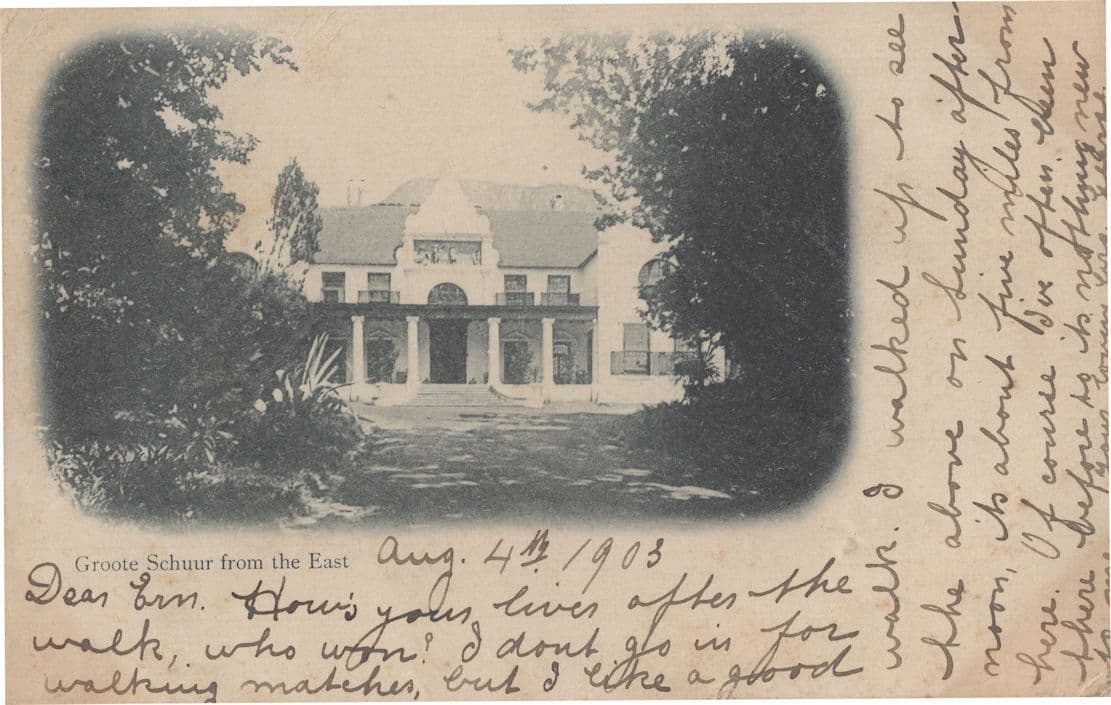 Groote Schuur from the East
Aug. 4th 1903
Dear Ern. How's your liver after the
walk, who won? I dont go in for
walking matches, but I like a good
walk. I walked up to see
the above on Sunday after
noon, its about five miles from
here. Of course I've often been
there before so its nothing new
to me. Your loving bro.